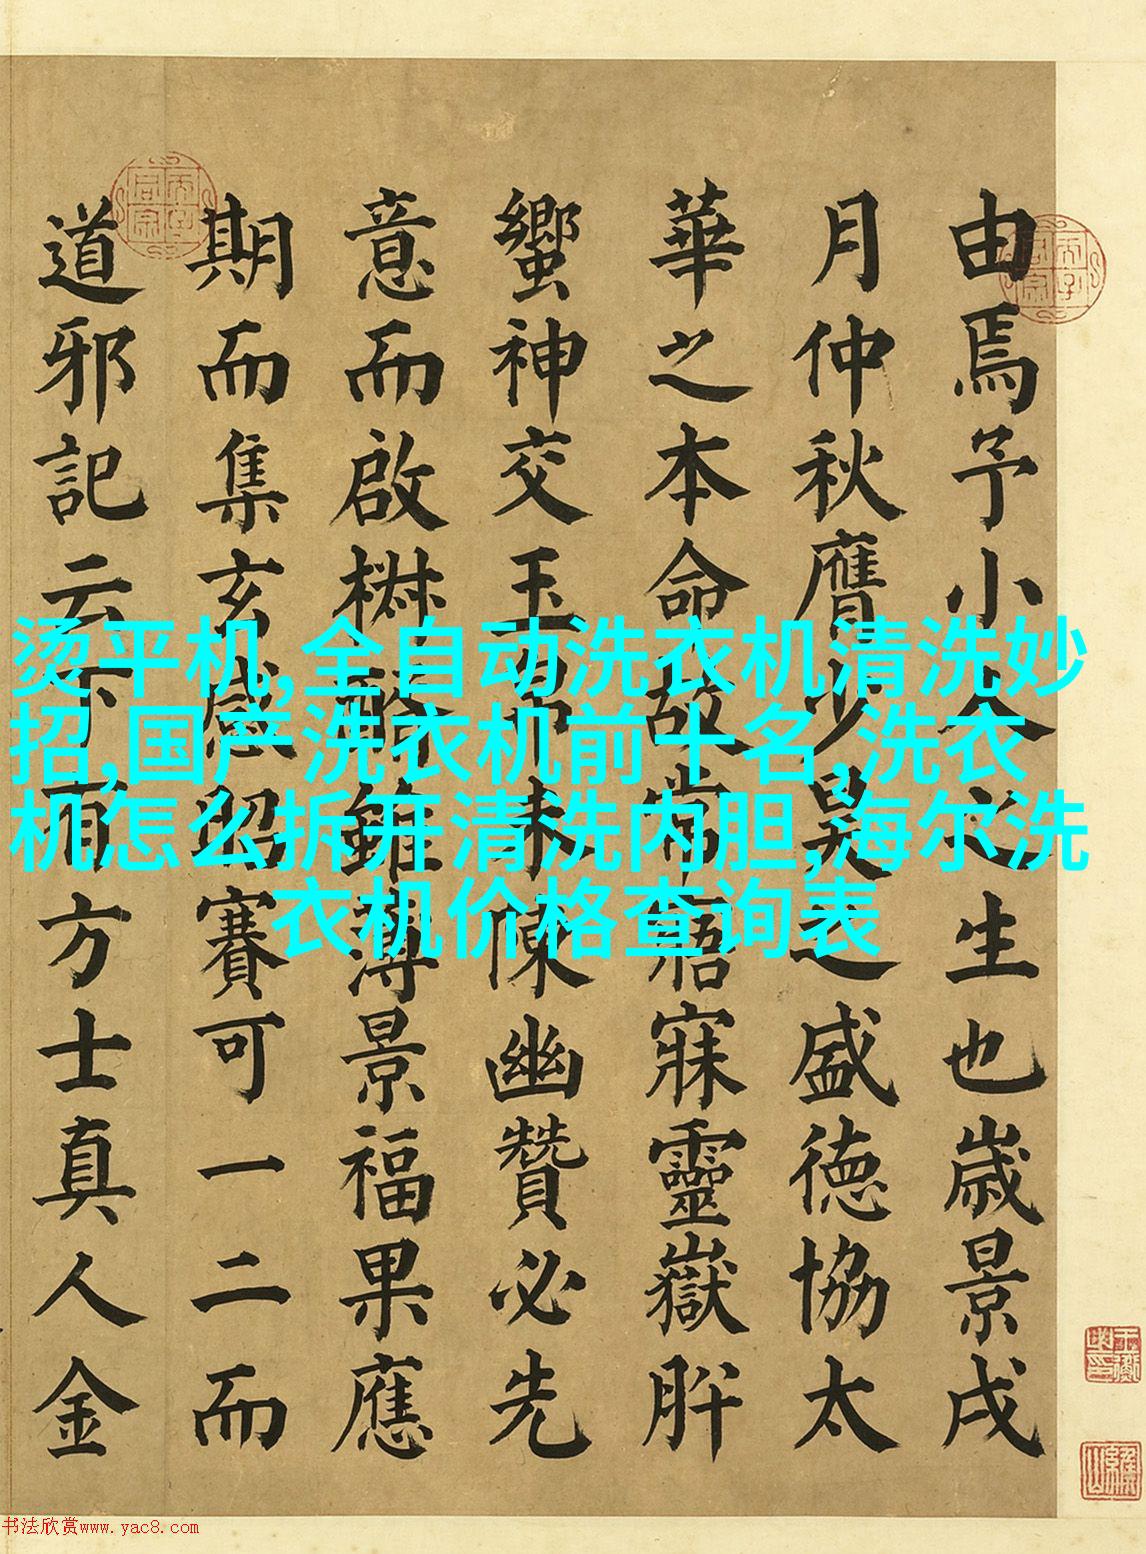 由焉予小人之生也歲景戌
月仲秋膺少昊之盛德協太
華之本命故常寤寐靈嶽肸
蠁神交玉帛未陳幽贊必先
意而啟椒醑雖薄景福果應
期而集玄感昭賽可一二而
道邪記云下有方士真人金
烫平机,全自动洗衣机清洗妙
招,国产洗衣机前十名,洗衣
机怎么拆开清洗内胆,海尔洗
衣机价格查询表
书法欣赏www.yac8.com